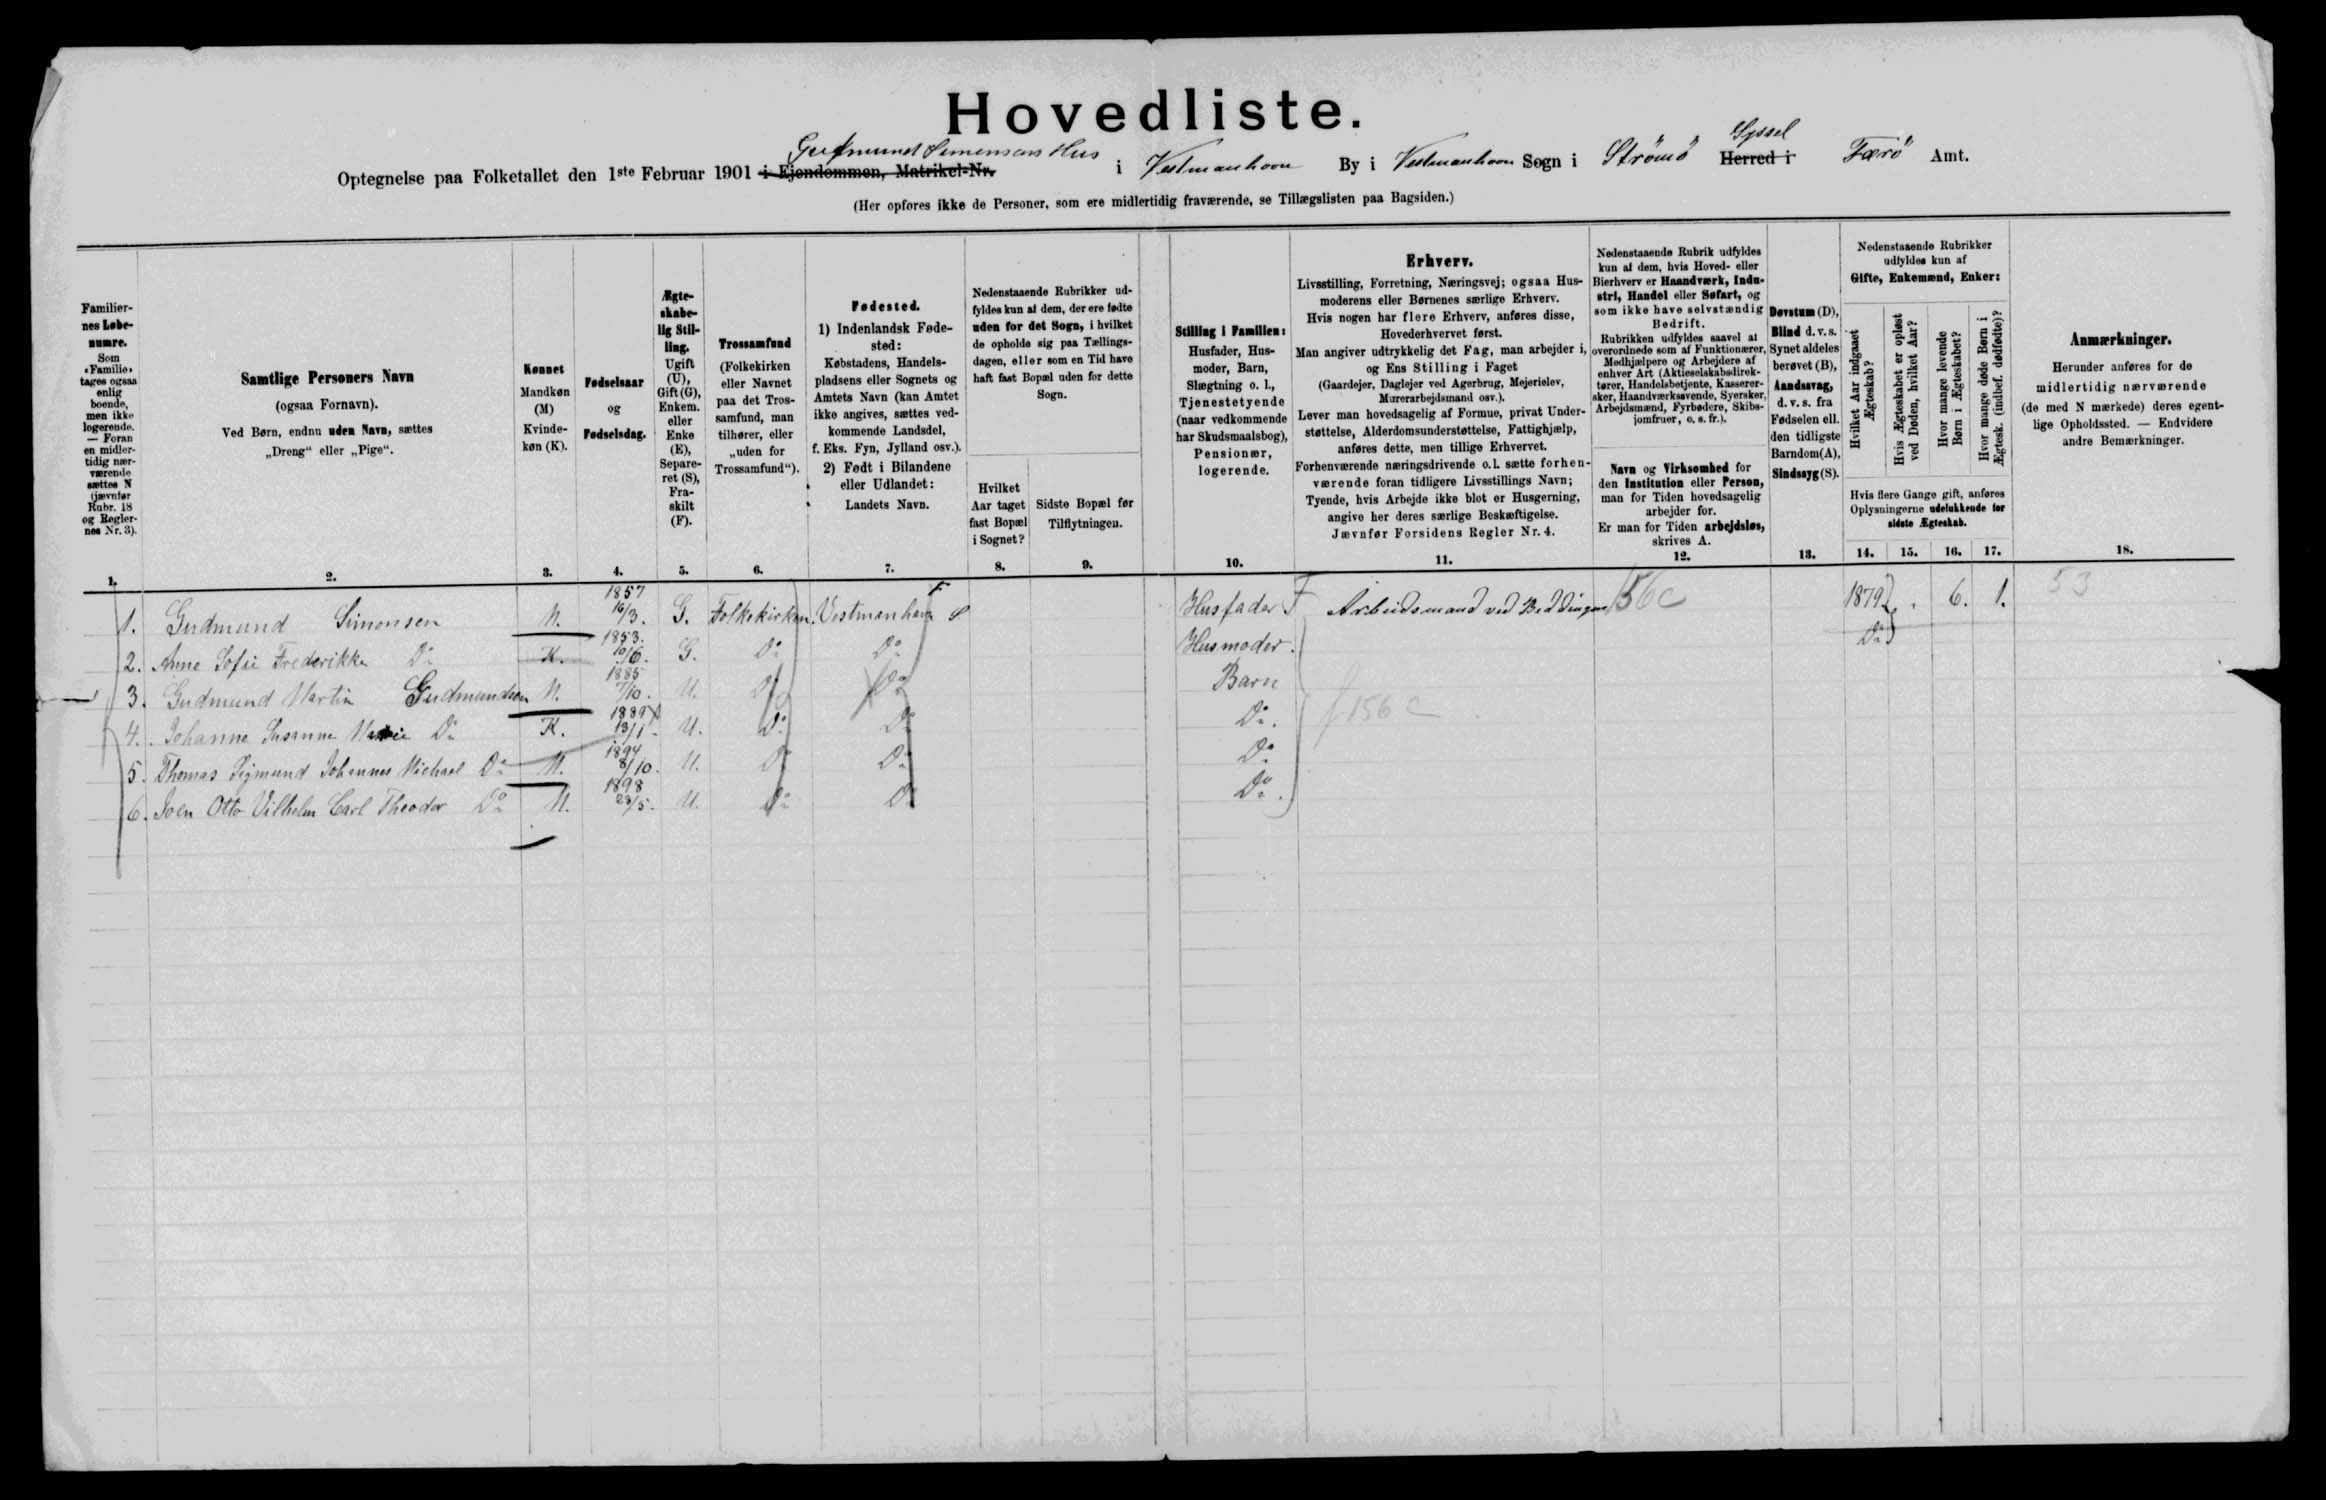 Hovedliste.
Gudmund Simonsens Hus
Syssel
Optegnelse paa Folketallet den 1ste Februar 1901 i Ejendommen, Matrikel-Nr. i Vestmanhavn By i Vestmanhavn Sogn i Strömö Herred i Færö Amt.
(Her opføres ikke de Personer, som ere midlertidig fraværende, se Tillægslisten paa Bagsiden.)
Familier-
nes Løbe-
numre.
Som
«Familie»
tages ogsaa
enlig
boende,
men ikke
logerende.
— Foran
en midler-
tidig nær-
værende
sættes N
(jævnfør
Rubr. 18
og Regler-
nes Nr. 3).
1.
Samtlige Personers Navn
(ogsaa Fornavn).
Ved Børn, endnu uden Navn, sættes
„Dreng“ eller „Pige“.
2.
Kønnet
Mandkøn
(M)
Kvinde-
køn (K).
3.
Fødselsaar
og
Fødselsdag.
4.
Ægte-
skabe-
lig Stil-
ling.
Ugift
(U),
Gift (G),
Enkem.
eller
Enke
(E),
Separe-
ret (S),
Fra-
skilt
(F).
5.
Trossamfund
(Folkekirken
eller Navnet
paa det Tros-
samfund, man
tilhører, eller
„uden for
Trossamfund“).
6.
Fødested.
1) Indenlandsk Føde-
sted:
Købstadens, Handels-
pladsens eller Sognets og
Amtets Navn (kan Amtet
ikke angives, sættes ved-
kommende Landsdel,
f. Eks. Fyn, Jylland osv.).
2) Født i Bilandene
eller Udlandet:
Landets Navn.
7.
Nedenstaaende Rubrikker ud-
fyldes kun af dem, der ere fødte
uden for det Sogn, i hvilket
de opholde sig paa Tællings-
dagen, eller som en Tid have
haft fast Bopæl uden for dette
Sogn.
Hvilket
Aar taget
fast Bopæl
i Sognet?
8.
Sidste Bopæl før
Tilflytningen.
9.
Stilling i Familien:
Husfader, Hus-
moder, Barn,
Slægtning o. l.,
Tjenestetyende
(naar vedkommende
har Skudsmaalsbog),
Pensionær,
logerende.
10.
Erhverv.
Livsstilling, Forretning, Næringsvej; ogsaa Hus-
moderens eller Børnenes særlige Erhverv.
Hvis nogen har flere Erhverv, anføres disse,
Hovederhvervet først.
Man angiver udtrykkelig det Fag, man arbejder i,
og Ens Stilling i Faget
(Gaardejer, Daglejer ved Agerbrug, Mejerielev,
Murerarbejdsmand osv.).
Lever man hovedsagelig af Formue, privat Under-
støttelse, Alderdomsunderstøttelse, Fattighjælp,
anføres dette, men tillige Erhvervet.
Forhenværende næringsdrivende o.l. sætte forhen-
værende foran tidligere Livsstillings Navn;
Tyende, hvis Arbejde ikke blot er Husgerning,
angive her deres særlige Beskæftigelse.
Jævnfør Forsidens Regler Nr. 4.
11.
Nedenstaaende Rubrik udfyldes
kun af dem, hvis Hoved- eller
Bierhverv er Haandværk, Indu-
stri, Handel eller Søfart, og
som ikke have selvstændig
Bedrift.
Rubrikken udfyldes saavel af
overordnede som af Funktionærer,
Medhjælpere og Arbejdere af
enhver Art (Aktieselskabsdirek-
tører, Handelsbetjente, Kasserer-
sker, Haandværkssvende, Syersker,
Arbejdsmænd, Fyrbødere, Skibs-
jomfruer, o. s. fr.).
Navn og Virksomhed for
den Institution eller Person,
man for Tiden hovedsagelig
arbejder for.
Er man for Tiden arbejdsløs,
skrives A.
12.
Døvstum (D),
Blind d. v. s.
Synet aldeles
berøvet (B),
Aandssvag,
d. v. s. fra
Fødselen ell.
den tidligste
Barndom (A),
Sindssyg (S).
13.
Nedenstaaende Rubrikker
udfyldes kun af
Gifte, Enkemænd, Enker:
Hvilket Aar indgaaet
Ægteskab?
Hvis Ægteskabet er opløst
ved Døden, hvilket Aar?
Hvor mange levende
Børn i Ægteskabet?
Hvor mange døde Børn i
Ægtesk. (indbef. dødfødte)?
Hvis flere Gange gift, anføres
Oplysningerne udelukkende for
sidste Ægteskab.
14. 15. 16. 17.
Anmærkninger.
Herunder anføres for de
midlertidig nærværende
(de med N mærkede) deres egent-
lige Opholdssted. — Endvidere
andre Bemærkninger.
18.
1. Gudmund Simonsen M. 1857 16/3. G. Folkekirken. Vestmanhavn Husfader F Arbeidsmand ved Beddingen 156 C 1879. 6. 1. 53
2. Anne Sofie Frederikke Do K. 1853. 10/6. G. Do Do Husmoder. Do
3. Gudmund Martin Gudmundsen M. 1885 7/10. U. Do Do Barn
4. Johanne Susanne Marie Do K. 1889 13/1. U. Do Do Do. f 156 C
5. Thomas Sigmund Johannes Michael Do M. 1894 8/10. U. Do Do Do
6. Joen Otto Vilhelm Carl Theodor Do M. 1898 23/5. U. Do Do Do.